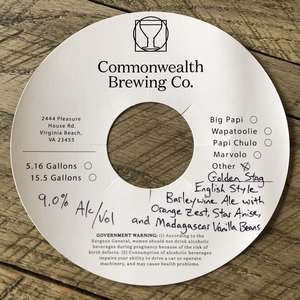 Commonwealth
Brewing Co.
2444 Pleasure
House Rd.
Virginia Beach,
VA 23455
5.16 Gallons
15.5 Gallons
9.0% Alc/Vol
Big Papi
Wapatoolie
Papi Chulo
Marvolo
Other X
Golden Stag
English Style
Barleywine Ale with
Orange Zest, Star Anise,
and Madagascar Vanilla Beans
GOVERNMENT WARNING: (1) According to the
Surgeon General, women should not drink alcoholic
beverages during pregnancy because of the risk
of birth defects. (2) Consumption of alcoholic beverages
impairs your ability to drive a car or operate
machinery, and may cause health problems.